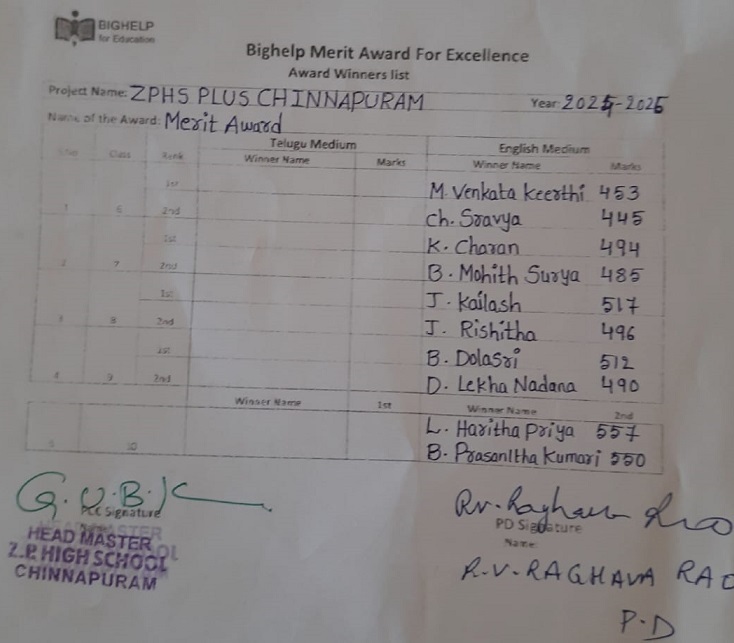 BIGHELP
for Education
Bighelp Merit Award For Excellence
Award Winners list
Project Name: ZPHS PLUS CHINNAPURAM Year: 2025-2026
Name of the Award: Merit Award
Telugu Medium English Medium
S.No Class Rank Winner Name Marks Winner Name Marks
1st M. Venkata Keerthi 453
1 6 2nd Ch. Sravya 445
1st K. Charan 494
2 7 2nd B. Mohith Surya 485
1st J. Kailash 517
3 8 2nd J. Rishitha 496
1st B. Dolasri 512
4 9 2nd D. Lekha Nadana 490
Winner Name 1st Winner Name 2nd
L. Haritha Priya 557
5 10 B. Prasanltha Kumari 550
G.V.B.K
PCC Signature
HEAD MASTER
Z.P. HIGH SCHOOL
CHINNAPURAM
Rv. Raghava Rao
PD Signature
Name:
R.V. RAGHAVA RAO
P.D